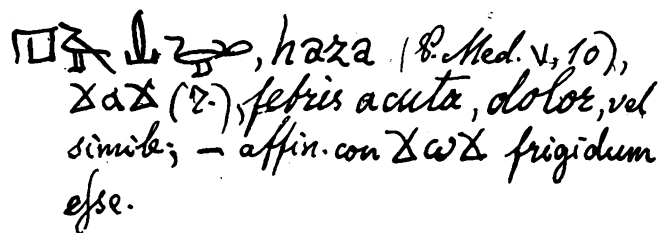 , haza (P. Med. V, 10),
ϪⲁϪ (?.), febris acuta, dolor, vel
simile; — affin. con ϪⲱϪ frigidum
esse.